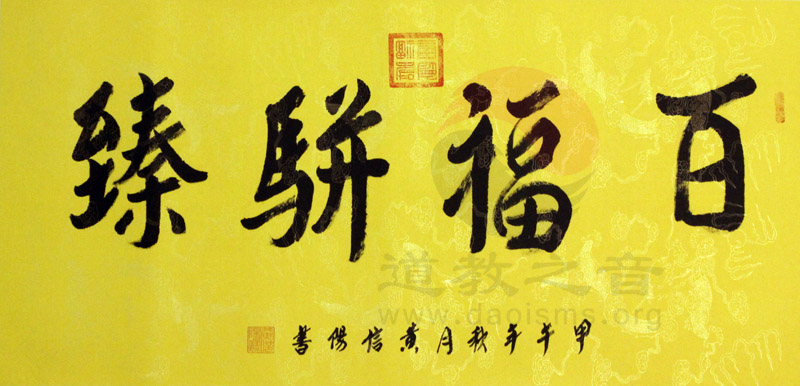 百福駢臻
甲午年秋月黄信陽書
道教之音
www.daoisms.org